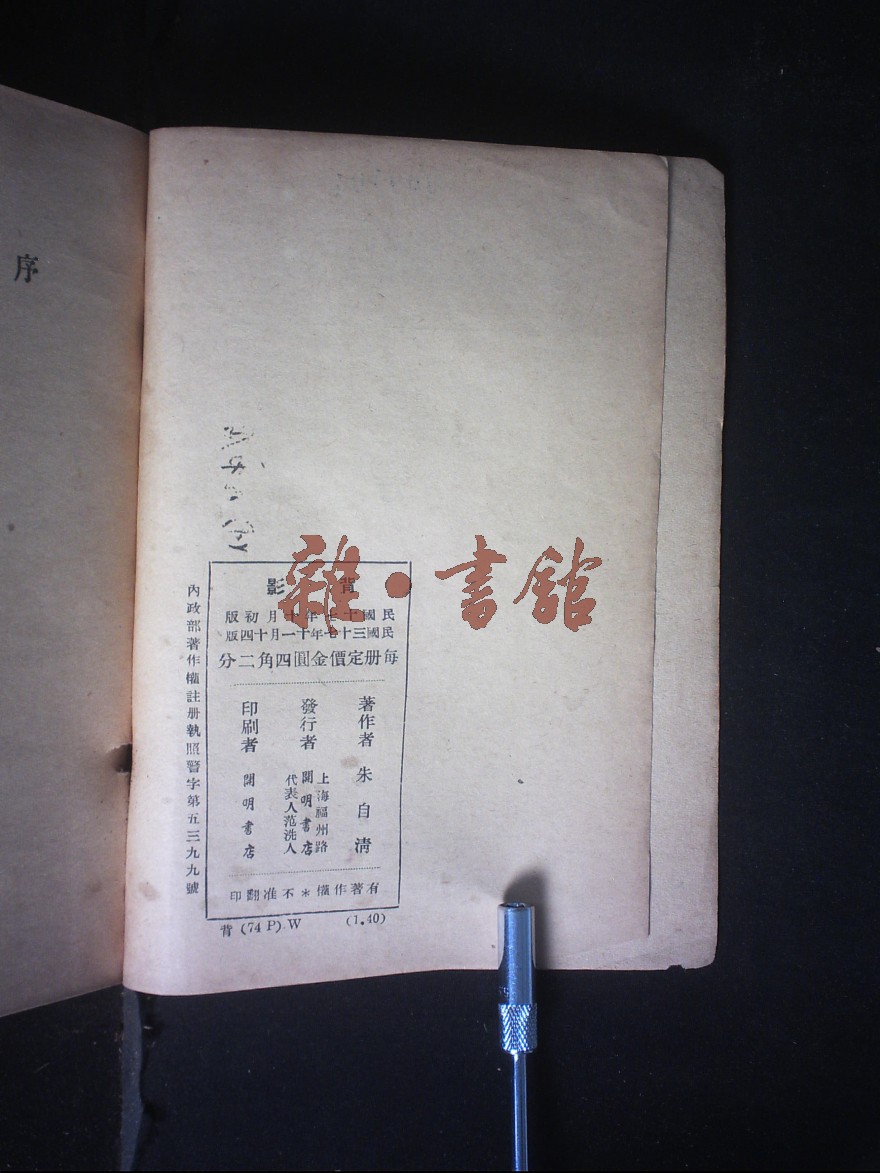 序
雜·書館
背影
民國十七年十月初版
民國三十七年十一月十四版
每册定價金圓四角二分
著作者 朱自清
發行者
上海福州路
開明書店
代表人范洗人
印刷者 開明書店
有著作權*不准翻印
內政部著作權註册執照警字第五三九九號
背 (74 P).W (1.40)